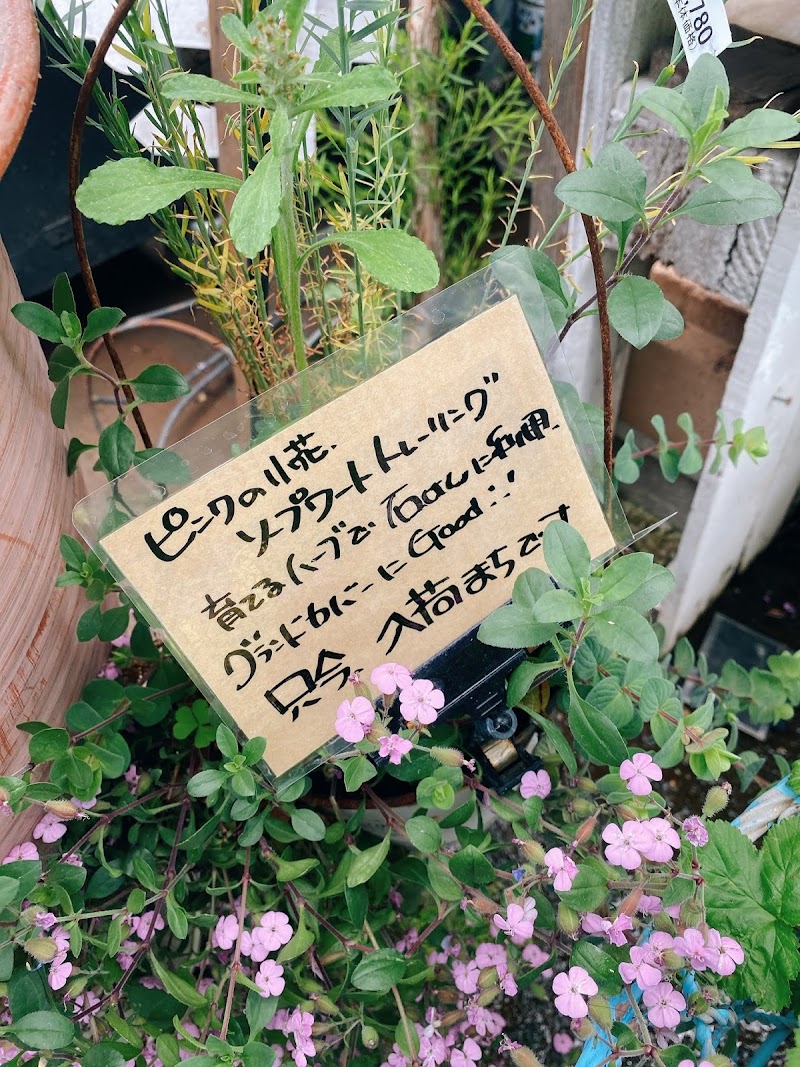 780
本体価格)
ピンクの小花、
ソープワートトレーリング
育てるハーブで 石けんに利用、
グランドカバーに Good!!
只今、入荷まちです